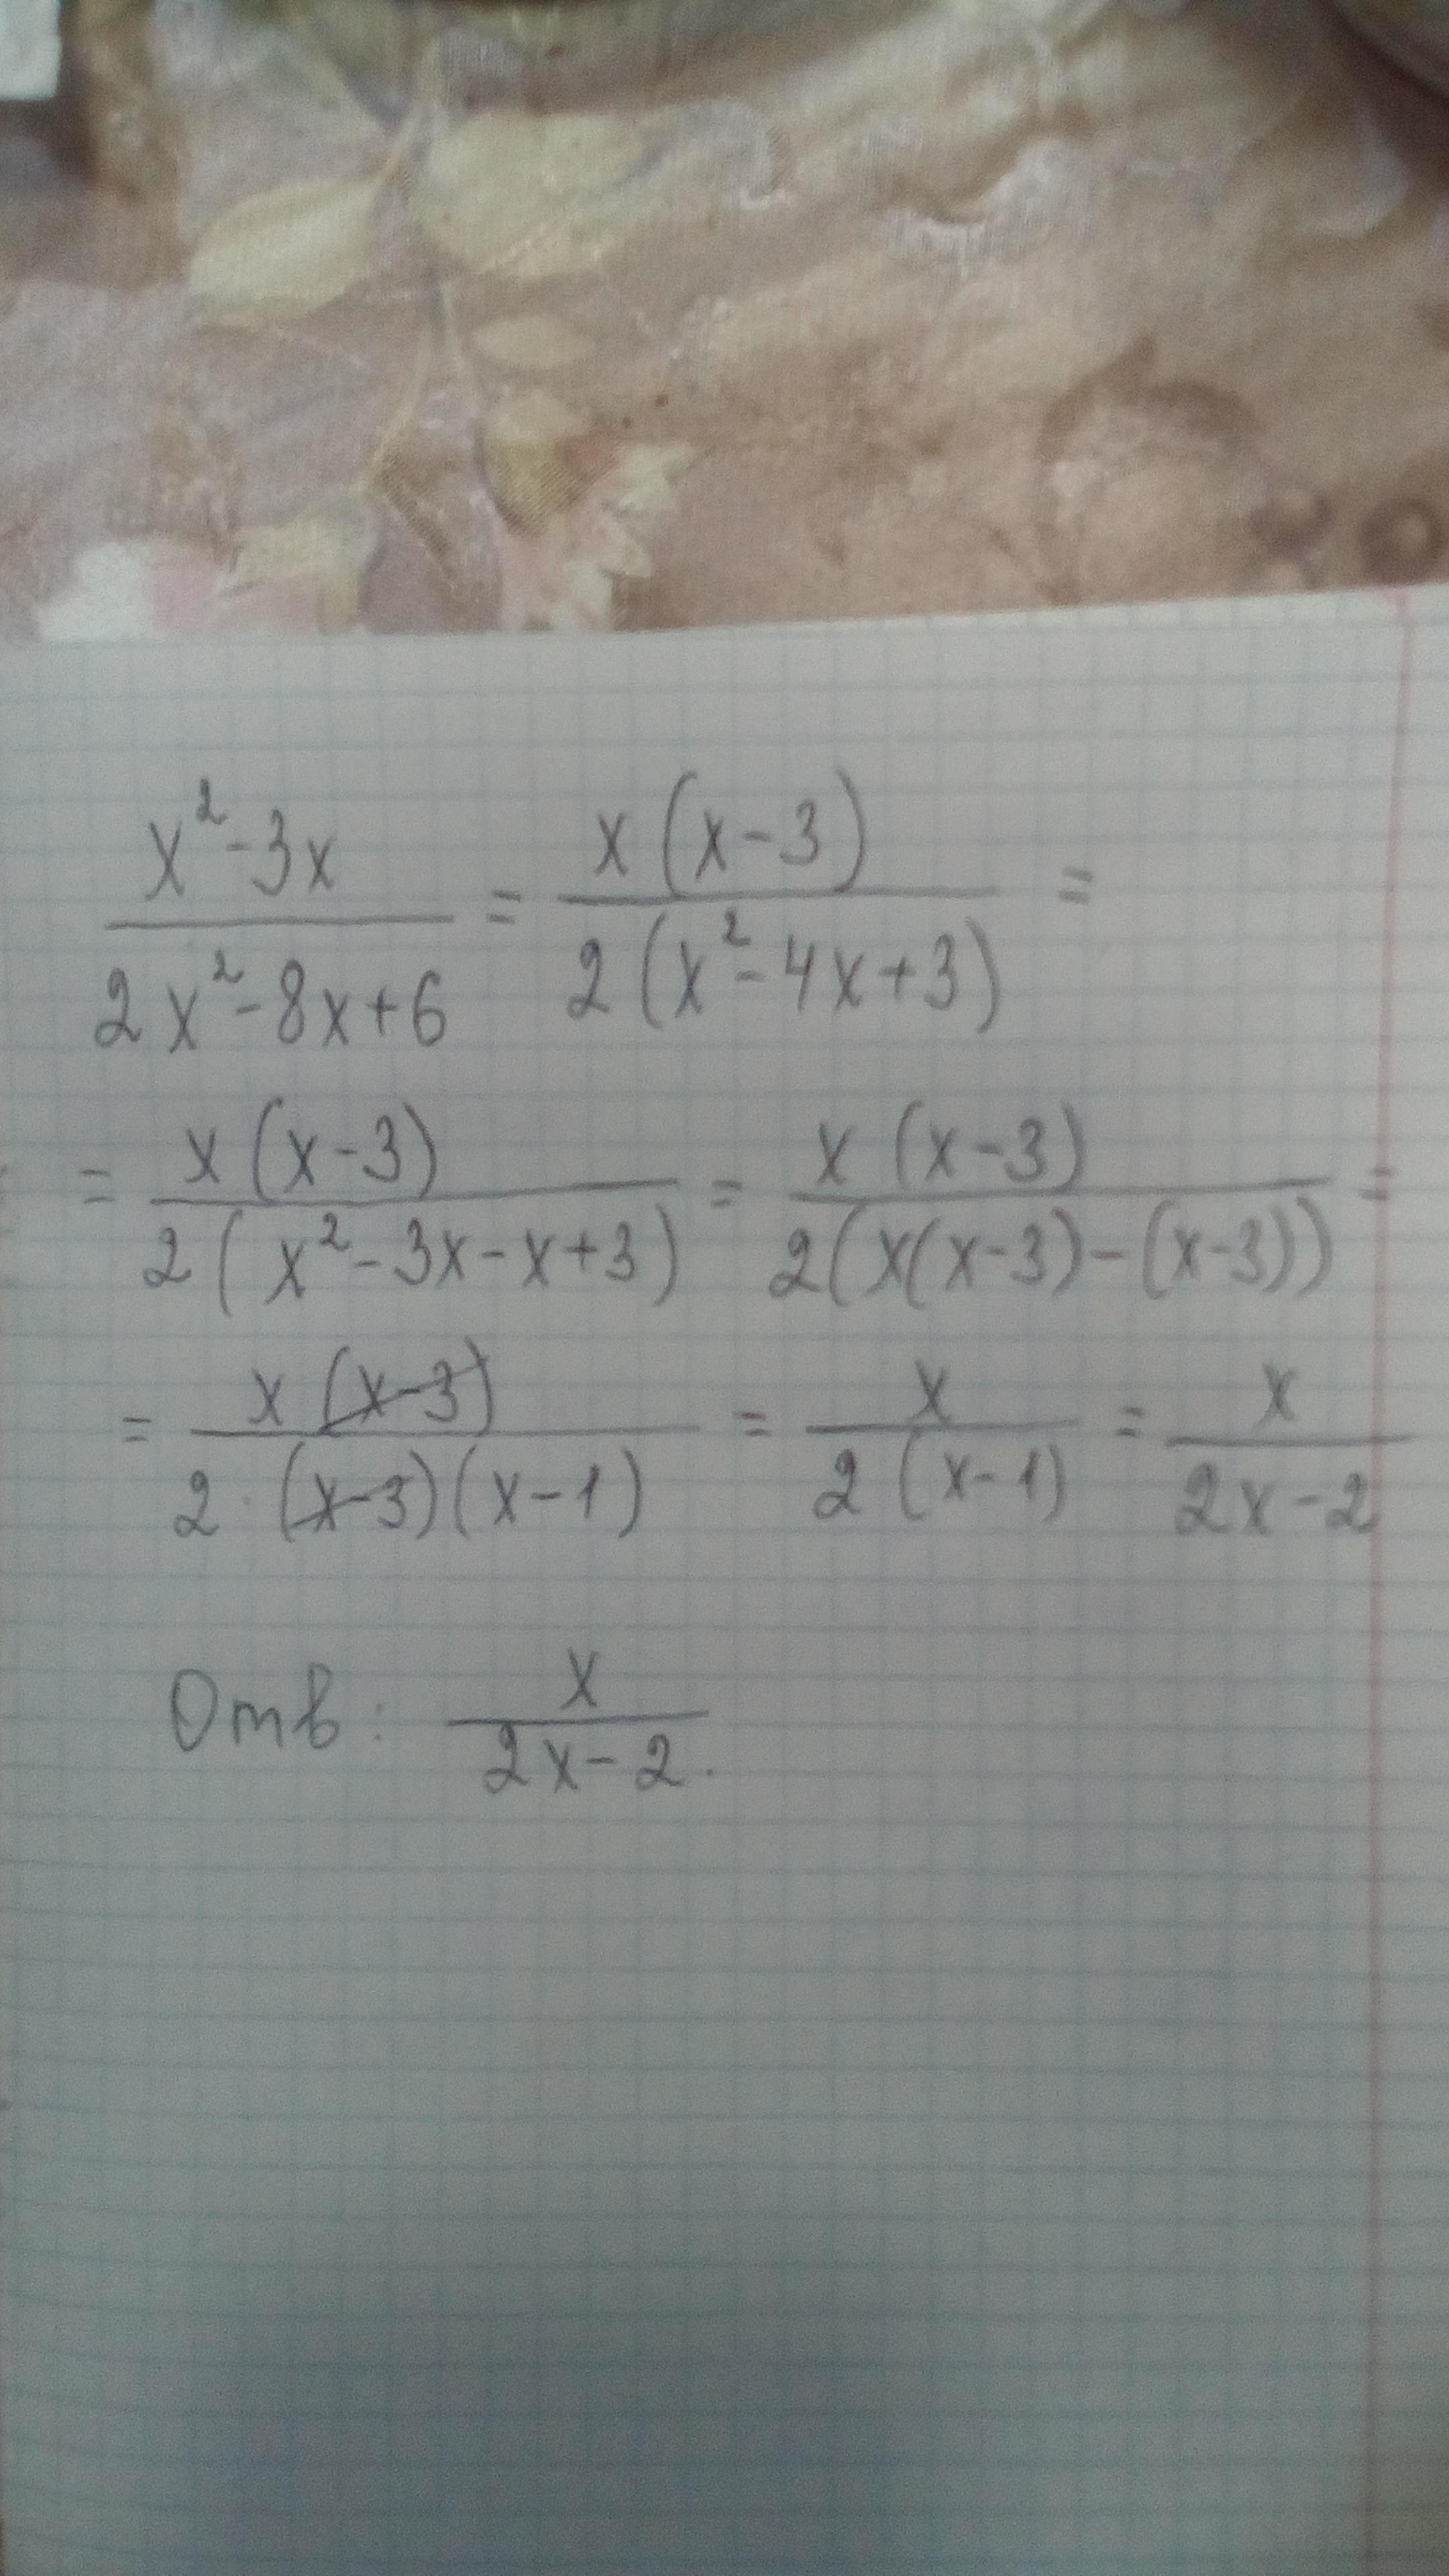 x²-3x / 2x²-8x+6 = x(x-3) / 2(x²-4x+3) =
= x(x-3) / 2(x²-3x-x+3) = x(x-3) / 2(x(x-3)-(x-3)) =
= x(x-3) / 2·(x-3)(x-1) = x / 2(x-1) = x / 2x-2
Отв: x / 2x-2.